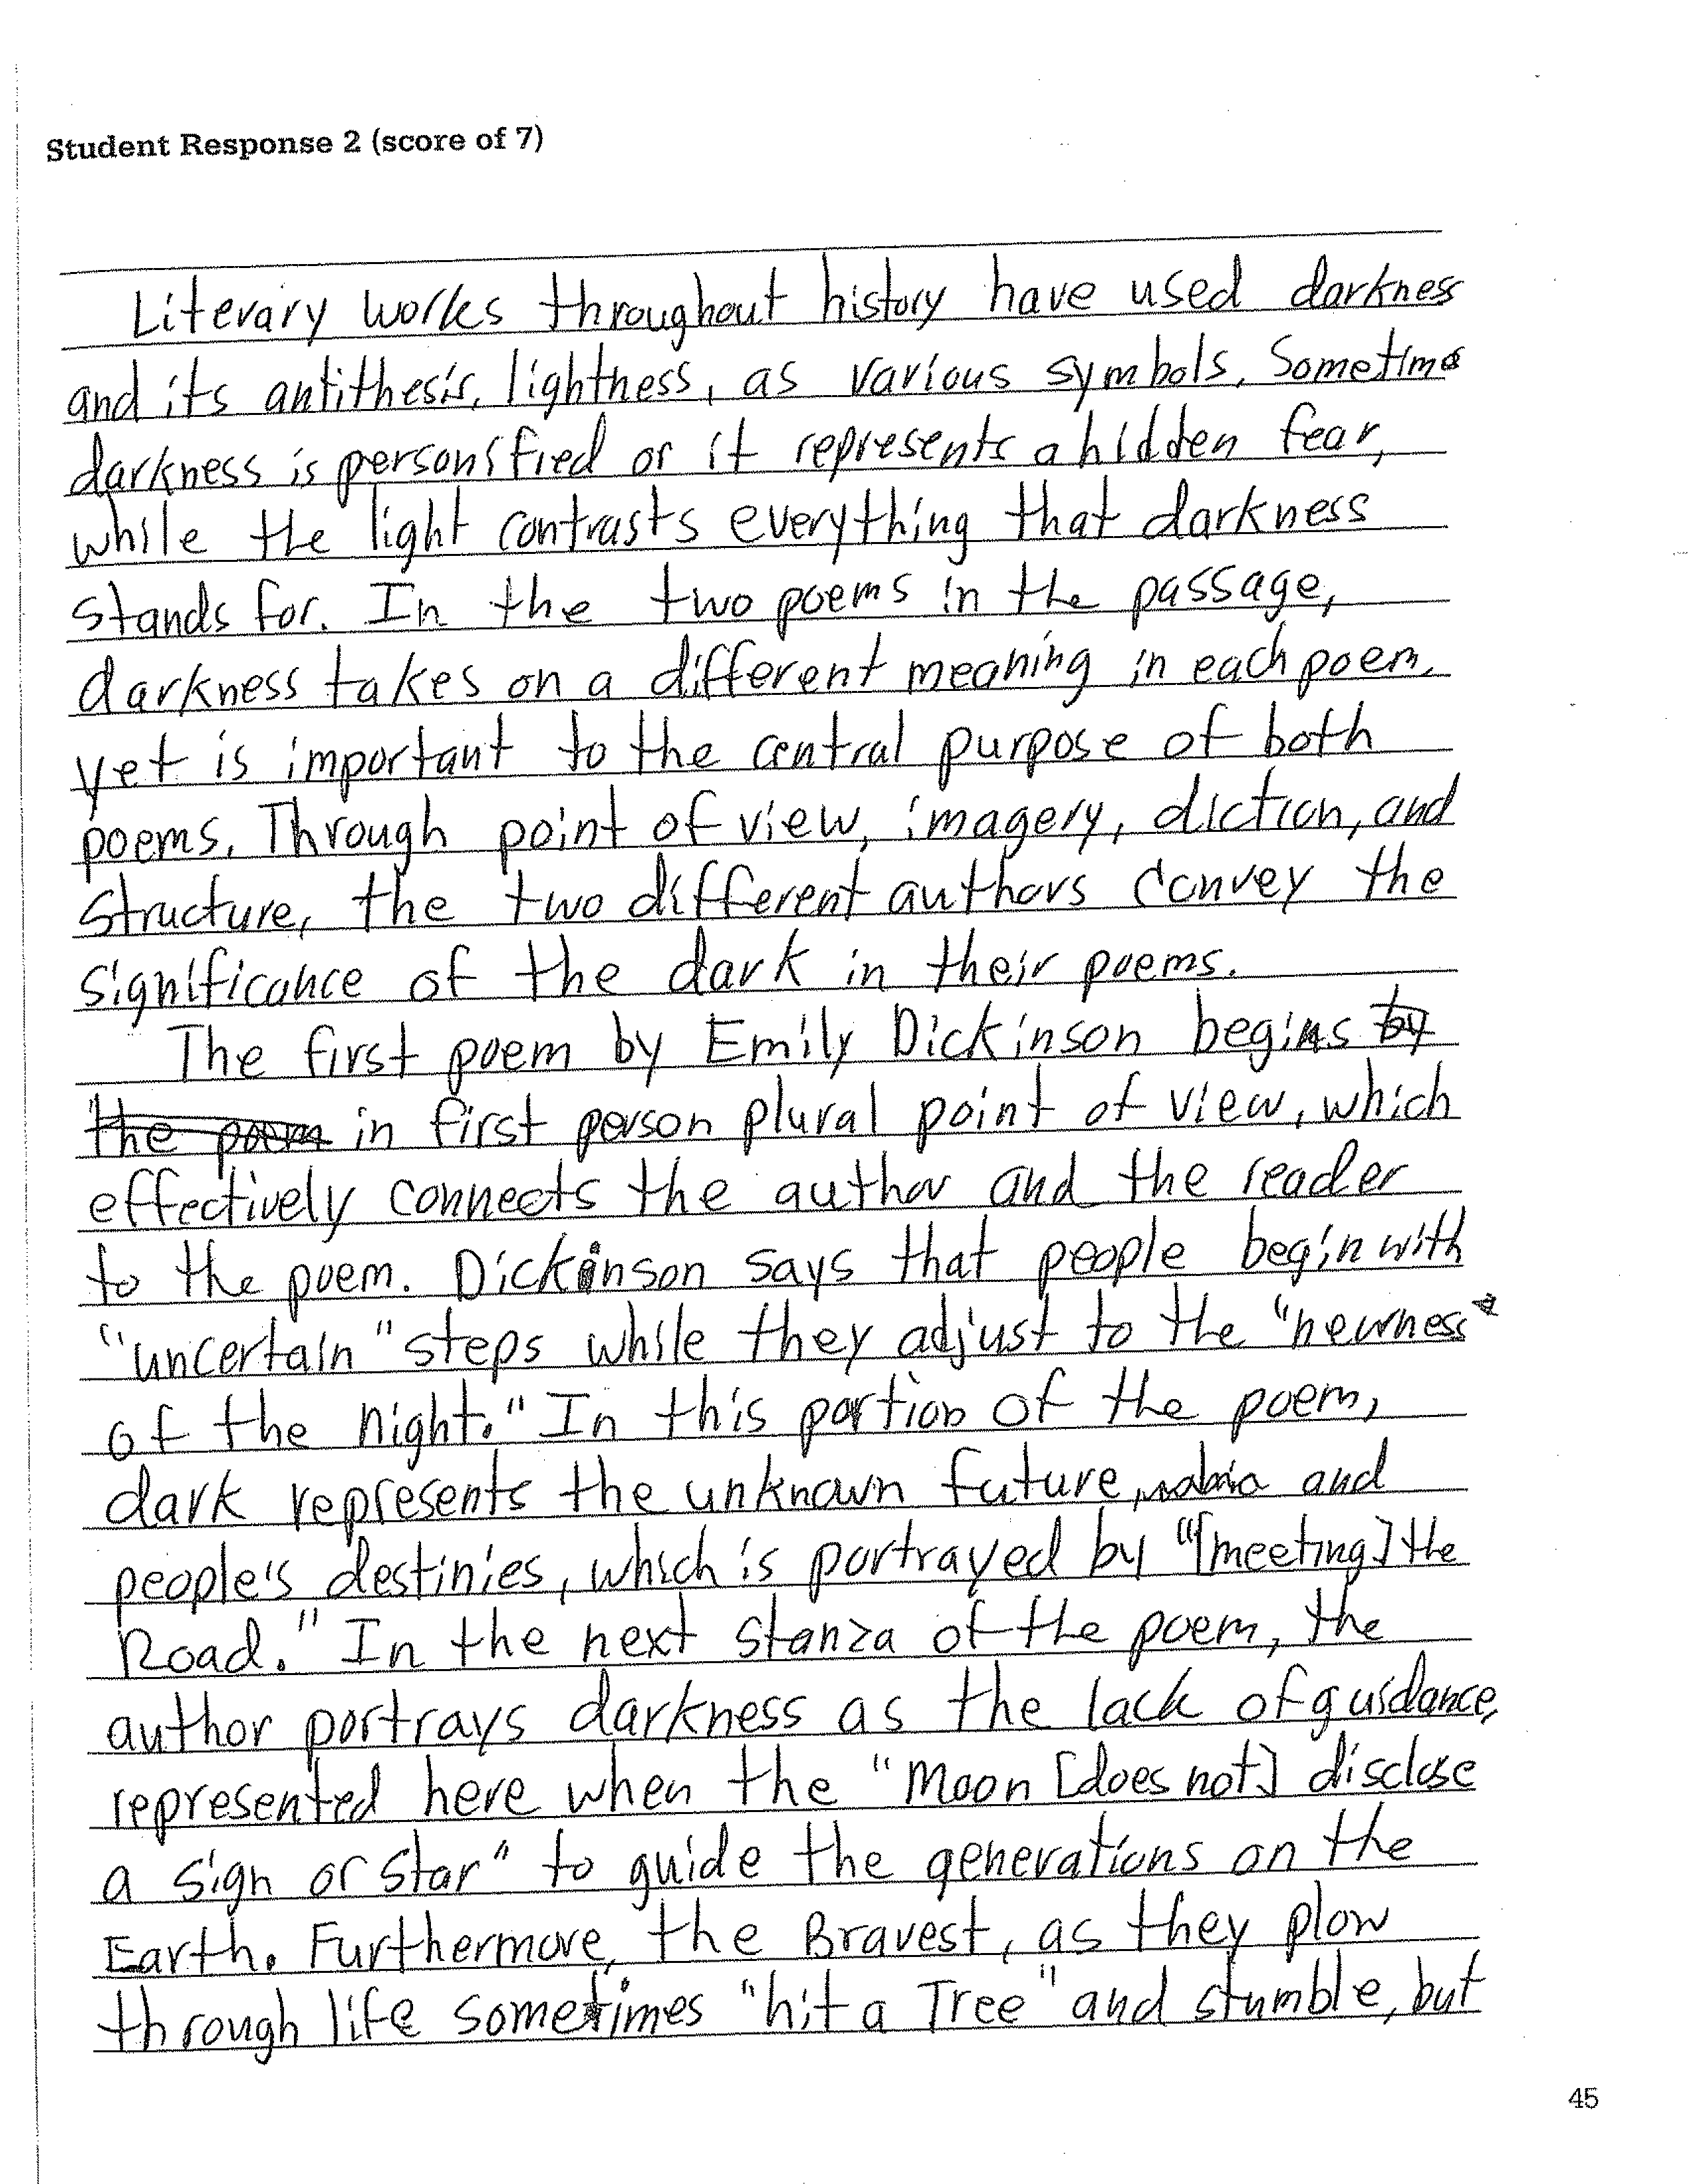 Student Response 2 (score of 7)
Literary works throughout history have used darkness
and its antithesis, lightness, as various symbols. Sometimes
darkness is personified or it represents a hidden fear,
while the light contrasts everything that darkness
stands for. In the two poems in the passage,
darkness takes on a different meaning in each poem,
yet is important to the central purpose of both
poems. Through point of view, imagery, diction, and
structure, the two different authors convey the
significance of the dark in their poems.
The first poem by Emily Dickinson begins by
the poem in first person plural point of view, which
effectively connects the author and the reader
to the poem. Dickinson says that people begin with
"uncertain" steps while they adjust to the "newness
of the night." In this portion of the poem,
dark represents the unknown future, and
people's destinies, which is portrayed by "[meeting] the
Road." In the next stanza of the poem, the
author portrays darkness as the lack of guidance,
represented here when the "Moon [does not] disclose
a sign or star" to guide the generations on the
Earth. Furthermore, the Bravest, as they plow
through life sometimes "hit a Tree" and stumble, but
45